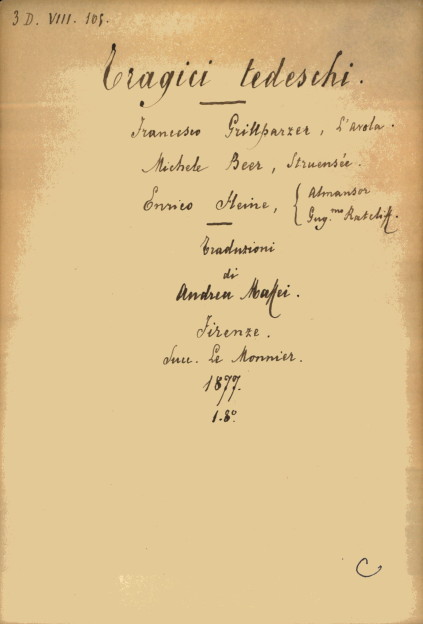 3 D. VIII. 105.
Tragici tedeschi.
Francesco Grillparzer, L'Avola.
Michele Beer, Struensée.
Enrico Heine, { Almansor
Gug.mo Ratcliff.
Traduzioni
di
Andrea Maffei.
Firenze.
Succ. Le Monnier.
1877.
1.8°
C